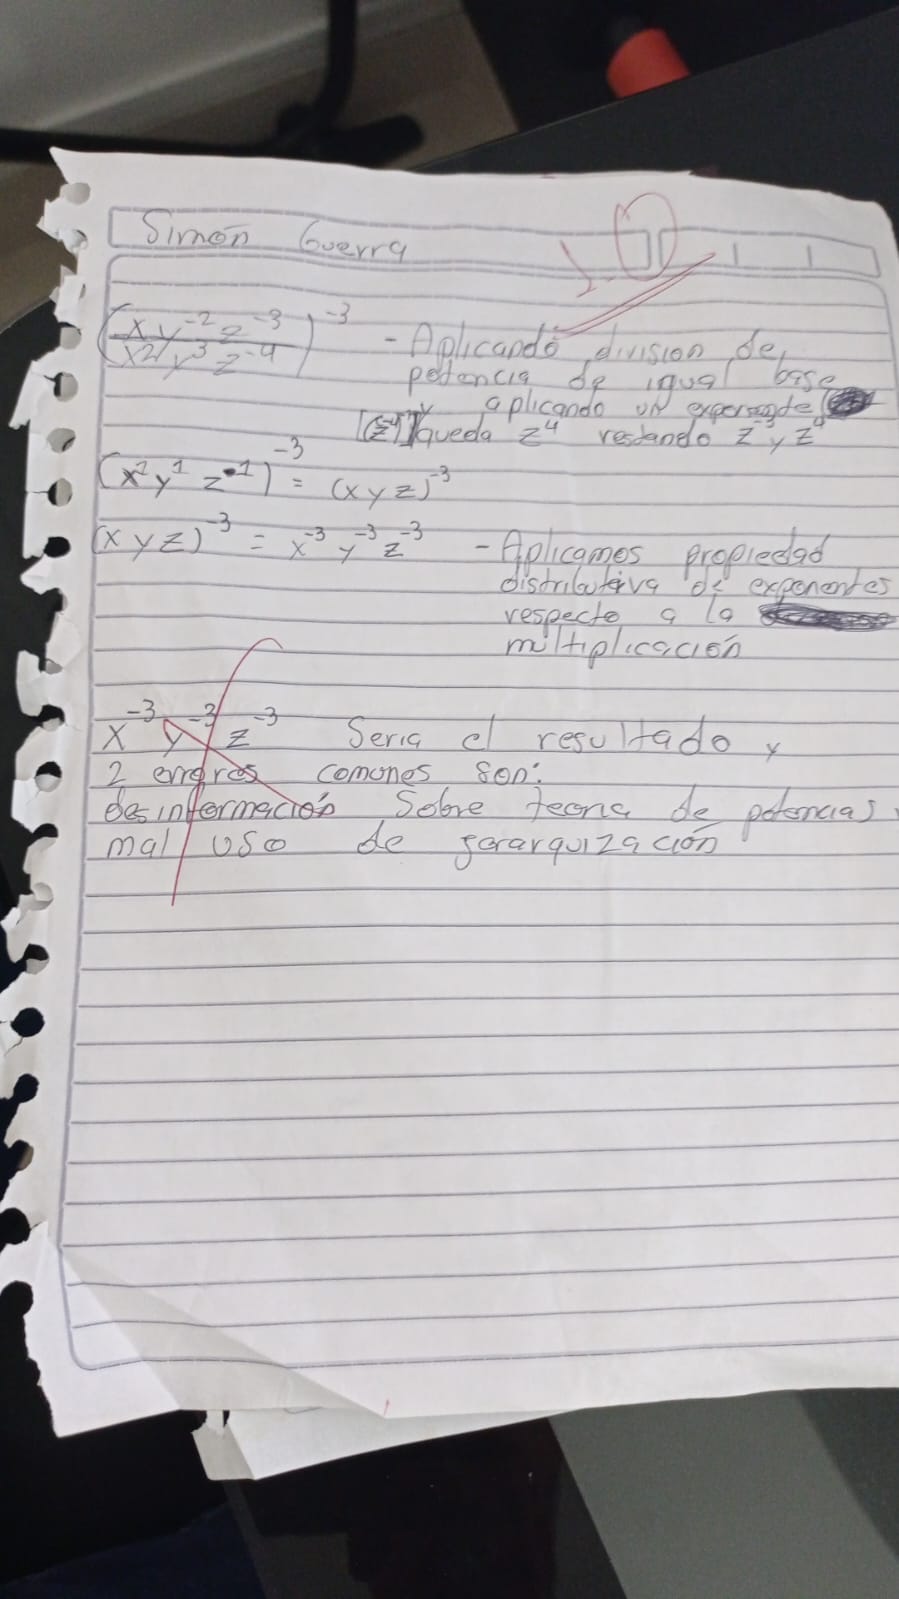 Simón Guerra
(xy⁻²z⁻³ / x2y³z⁻⁴)⁻³ - Aplicando división de
potencia de igual base
y aplicando un
queda z⁴ restando z⁻³ y z⁴
(x¹y¹z⁻¹)⁻³ = (xyz)⁻³
(xyz)⁻³ = x⁻³y⁻³z⁻³ - Aplicamos propiedad
distributiva de exponentes
respecto a la
multiplicación
x⁻³ y⁻³ z⁻³ Seria el resultado y
2 errores comunes son:
desinformación Sobre teoria de potencias y
mal uso de gerarquización